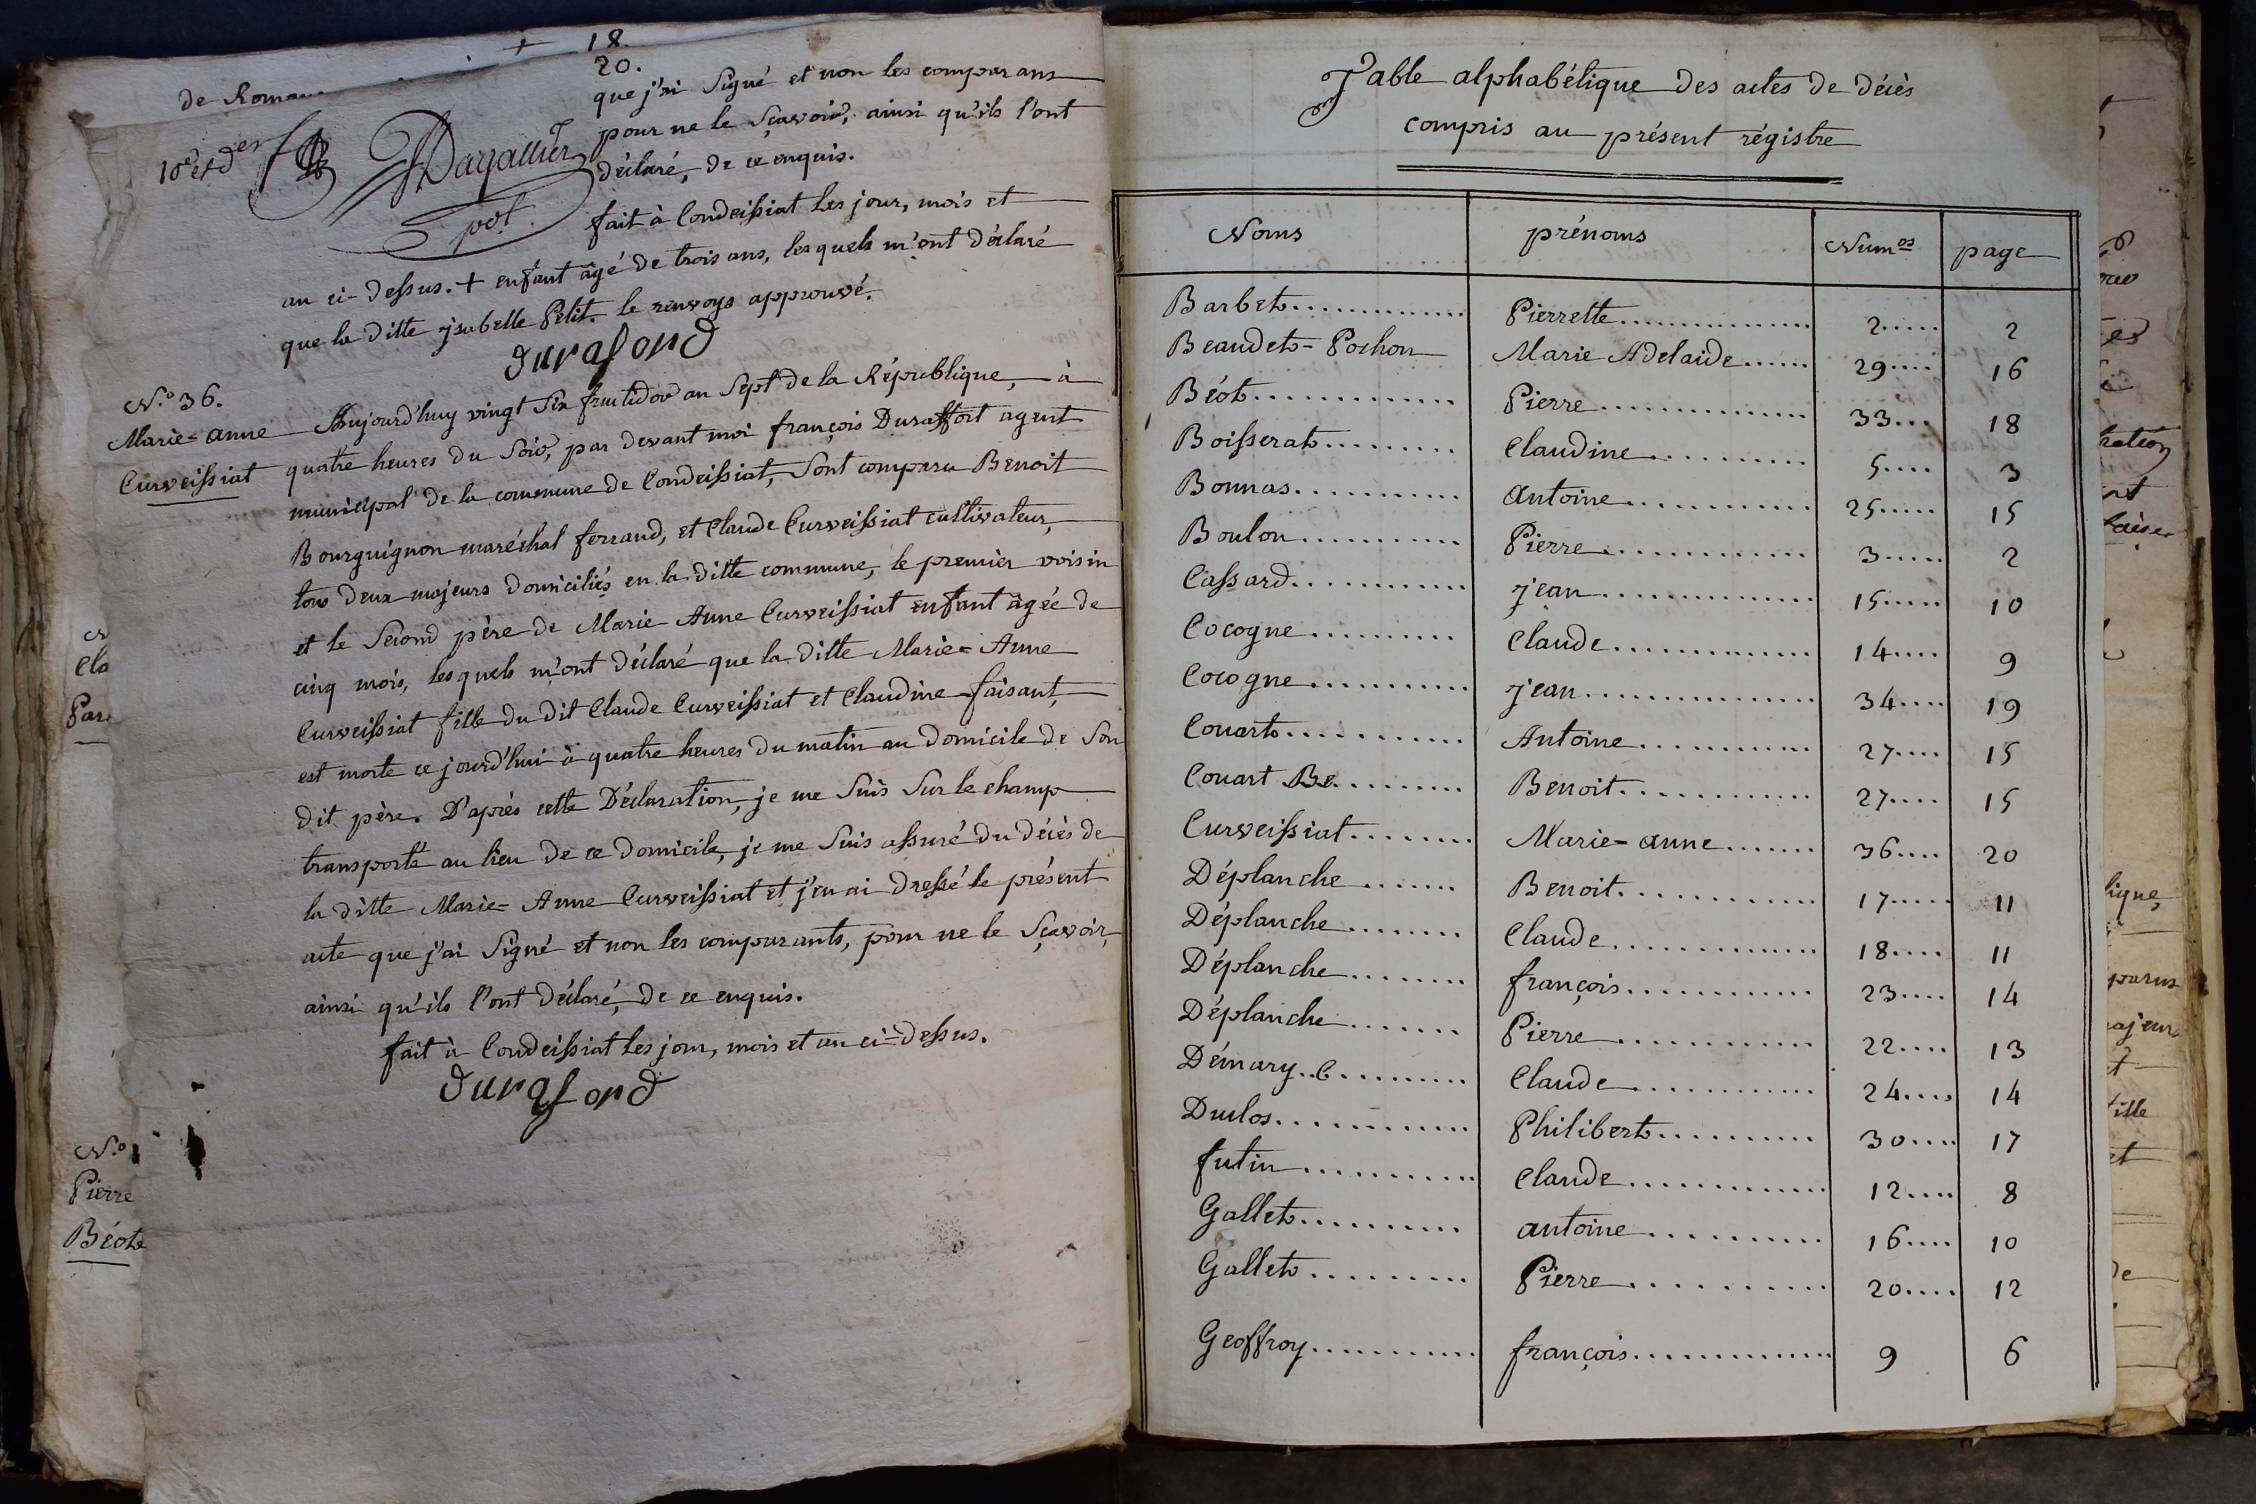 18.
de Roman
20.
10e et der
Dagallier
pdt
que j'ai Signé et non les comparans
pour ne le Sçavoir, ainsi qu'ils l'ont
déclaré, de ce enquis.
fait à Condeissiat les jour, mois et
an ci-dessus. + enfant âgé de trois ans, lesquels m'ont déclaré
que la ditte jsabelle Petit. le renvoys approuvé.
durafond
N.o 36.
Marie=anne
Curveissiat
Aujourd'huy vingt Six fructidor an Sept de la République, à
quatre heures du Soir, par devant moi françois Duraffort agent
municipal de la commune de Condeissiat, Sont comparu Benoit
Bourguignon maréchal ferrand, et Claude Curveissiat cultivateur,
tous deux majeurs domiciliés en la ditte commune, le premier voisin
et le Second père de Marie Anne Curveissiat enfant âgée de
cinq mois, lesquels m'ont déclaré que la ditte Marie=Anne
Curveissiat fille du dit Claude Curveissiat et Claudine faisant,
est morte ce jourd'hui à quatre heures du matin au domicile de Son
dit père. D'après cette Déclaration, je me Suis Sur le champ
transporté au lieu de ce domicile, je me Suis assuré du décès de
la ditte Marie=Anne Curveissiat et j'en ai dressé le présent
acte que j'ai Signé et non les comparants, pour ne le Sçavoir,
ainsi qu'ils l'ont déclaré, de ce enquis.
fait à Condeissiat les jour, mois et an ci=dessus.
durafond
Cla
Par
N.o
Pierre
Béot
Table alphabétique des actes de décès
compris au présent régistre
Noms prénoms Numos page
Barbet Pierrette 2 2
Beaudet=Pochon Marie Adelaide 29 16
Béot Pierre 33 18
Boisserat Claudine 5 3
Bonnas antoine 25 15
Boulon Pierre 3 2
Cassard jean 15 10
Cocogne Claude 14 9
Cocogne jean 34 19
Couart Antoine 27 15
Couart Be Benoit 27 15
Curveissiat Marie=anne 36 20
Déplanche Benoit 17 11
Déplanche Claude 18 11
Déplanche françois 23 14
Déplanche Pierre 22 13
Démary C Claude 24 14
Duclos Philibert 30 17
futin Claude 12 8
Gallet antoine 16 10
Gallet Pierre 20 12
Geoffroy françois 9 6